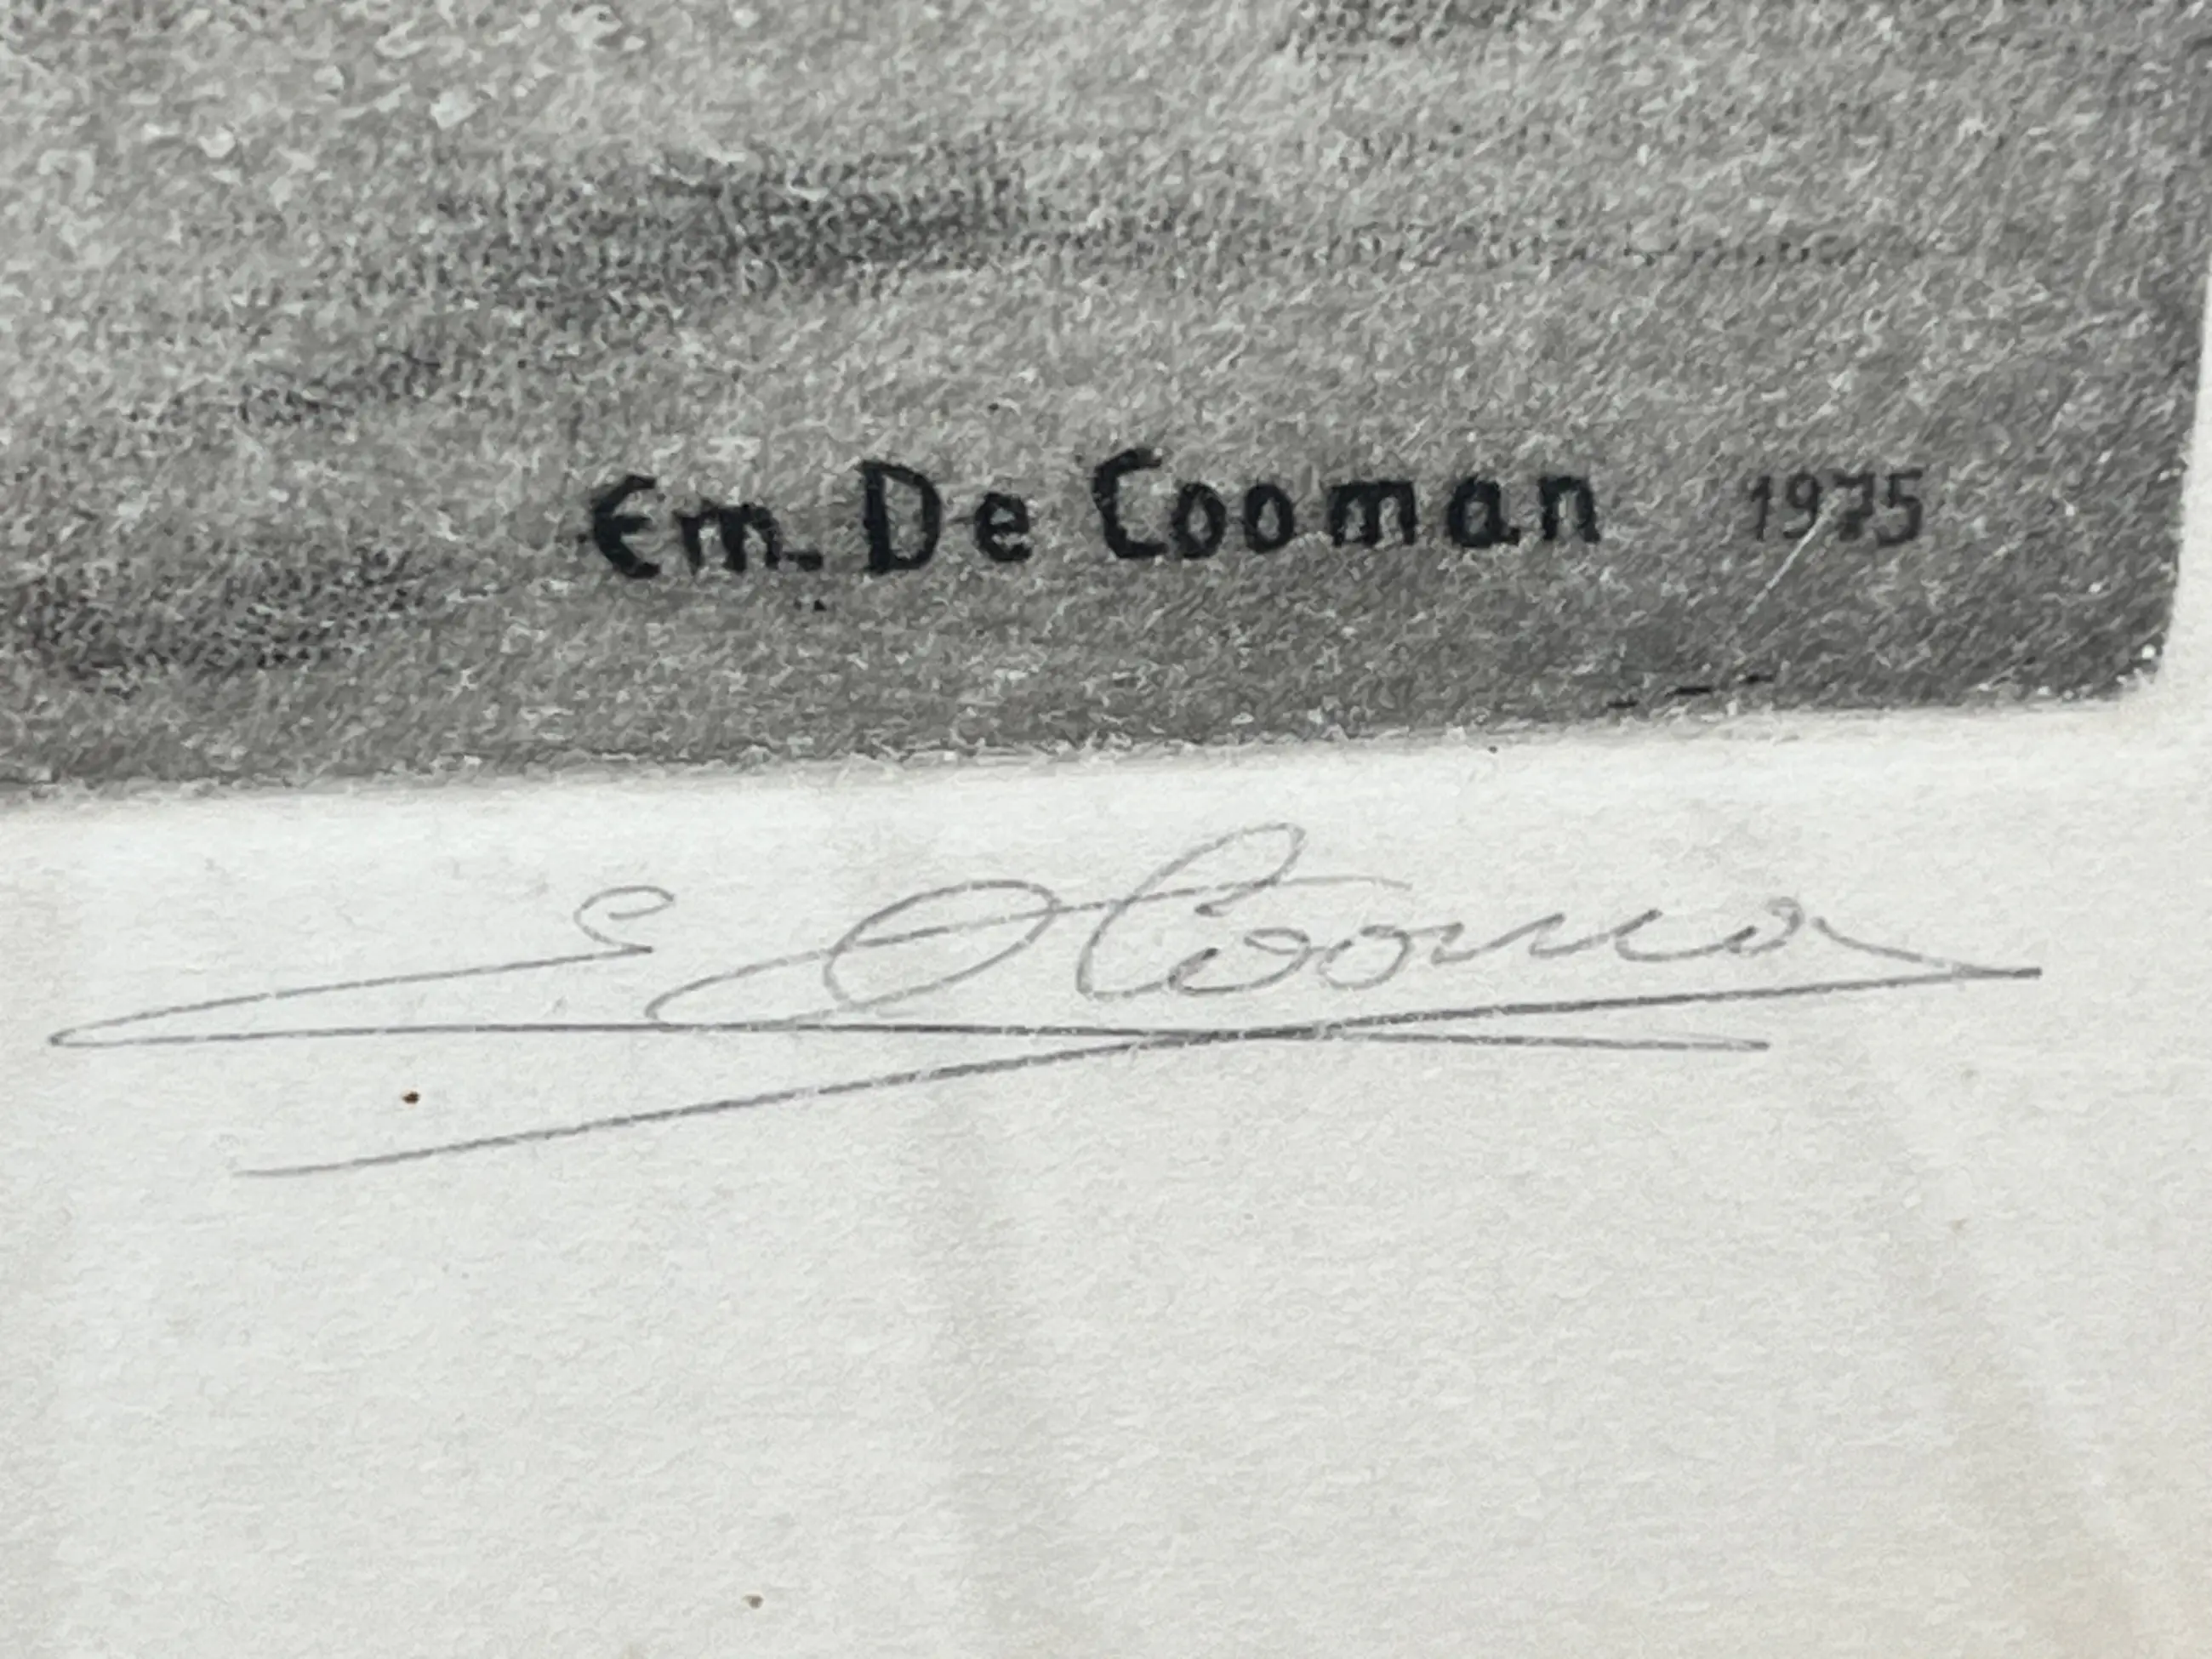 Em. De Cooman 1975
E D Cooman